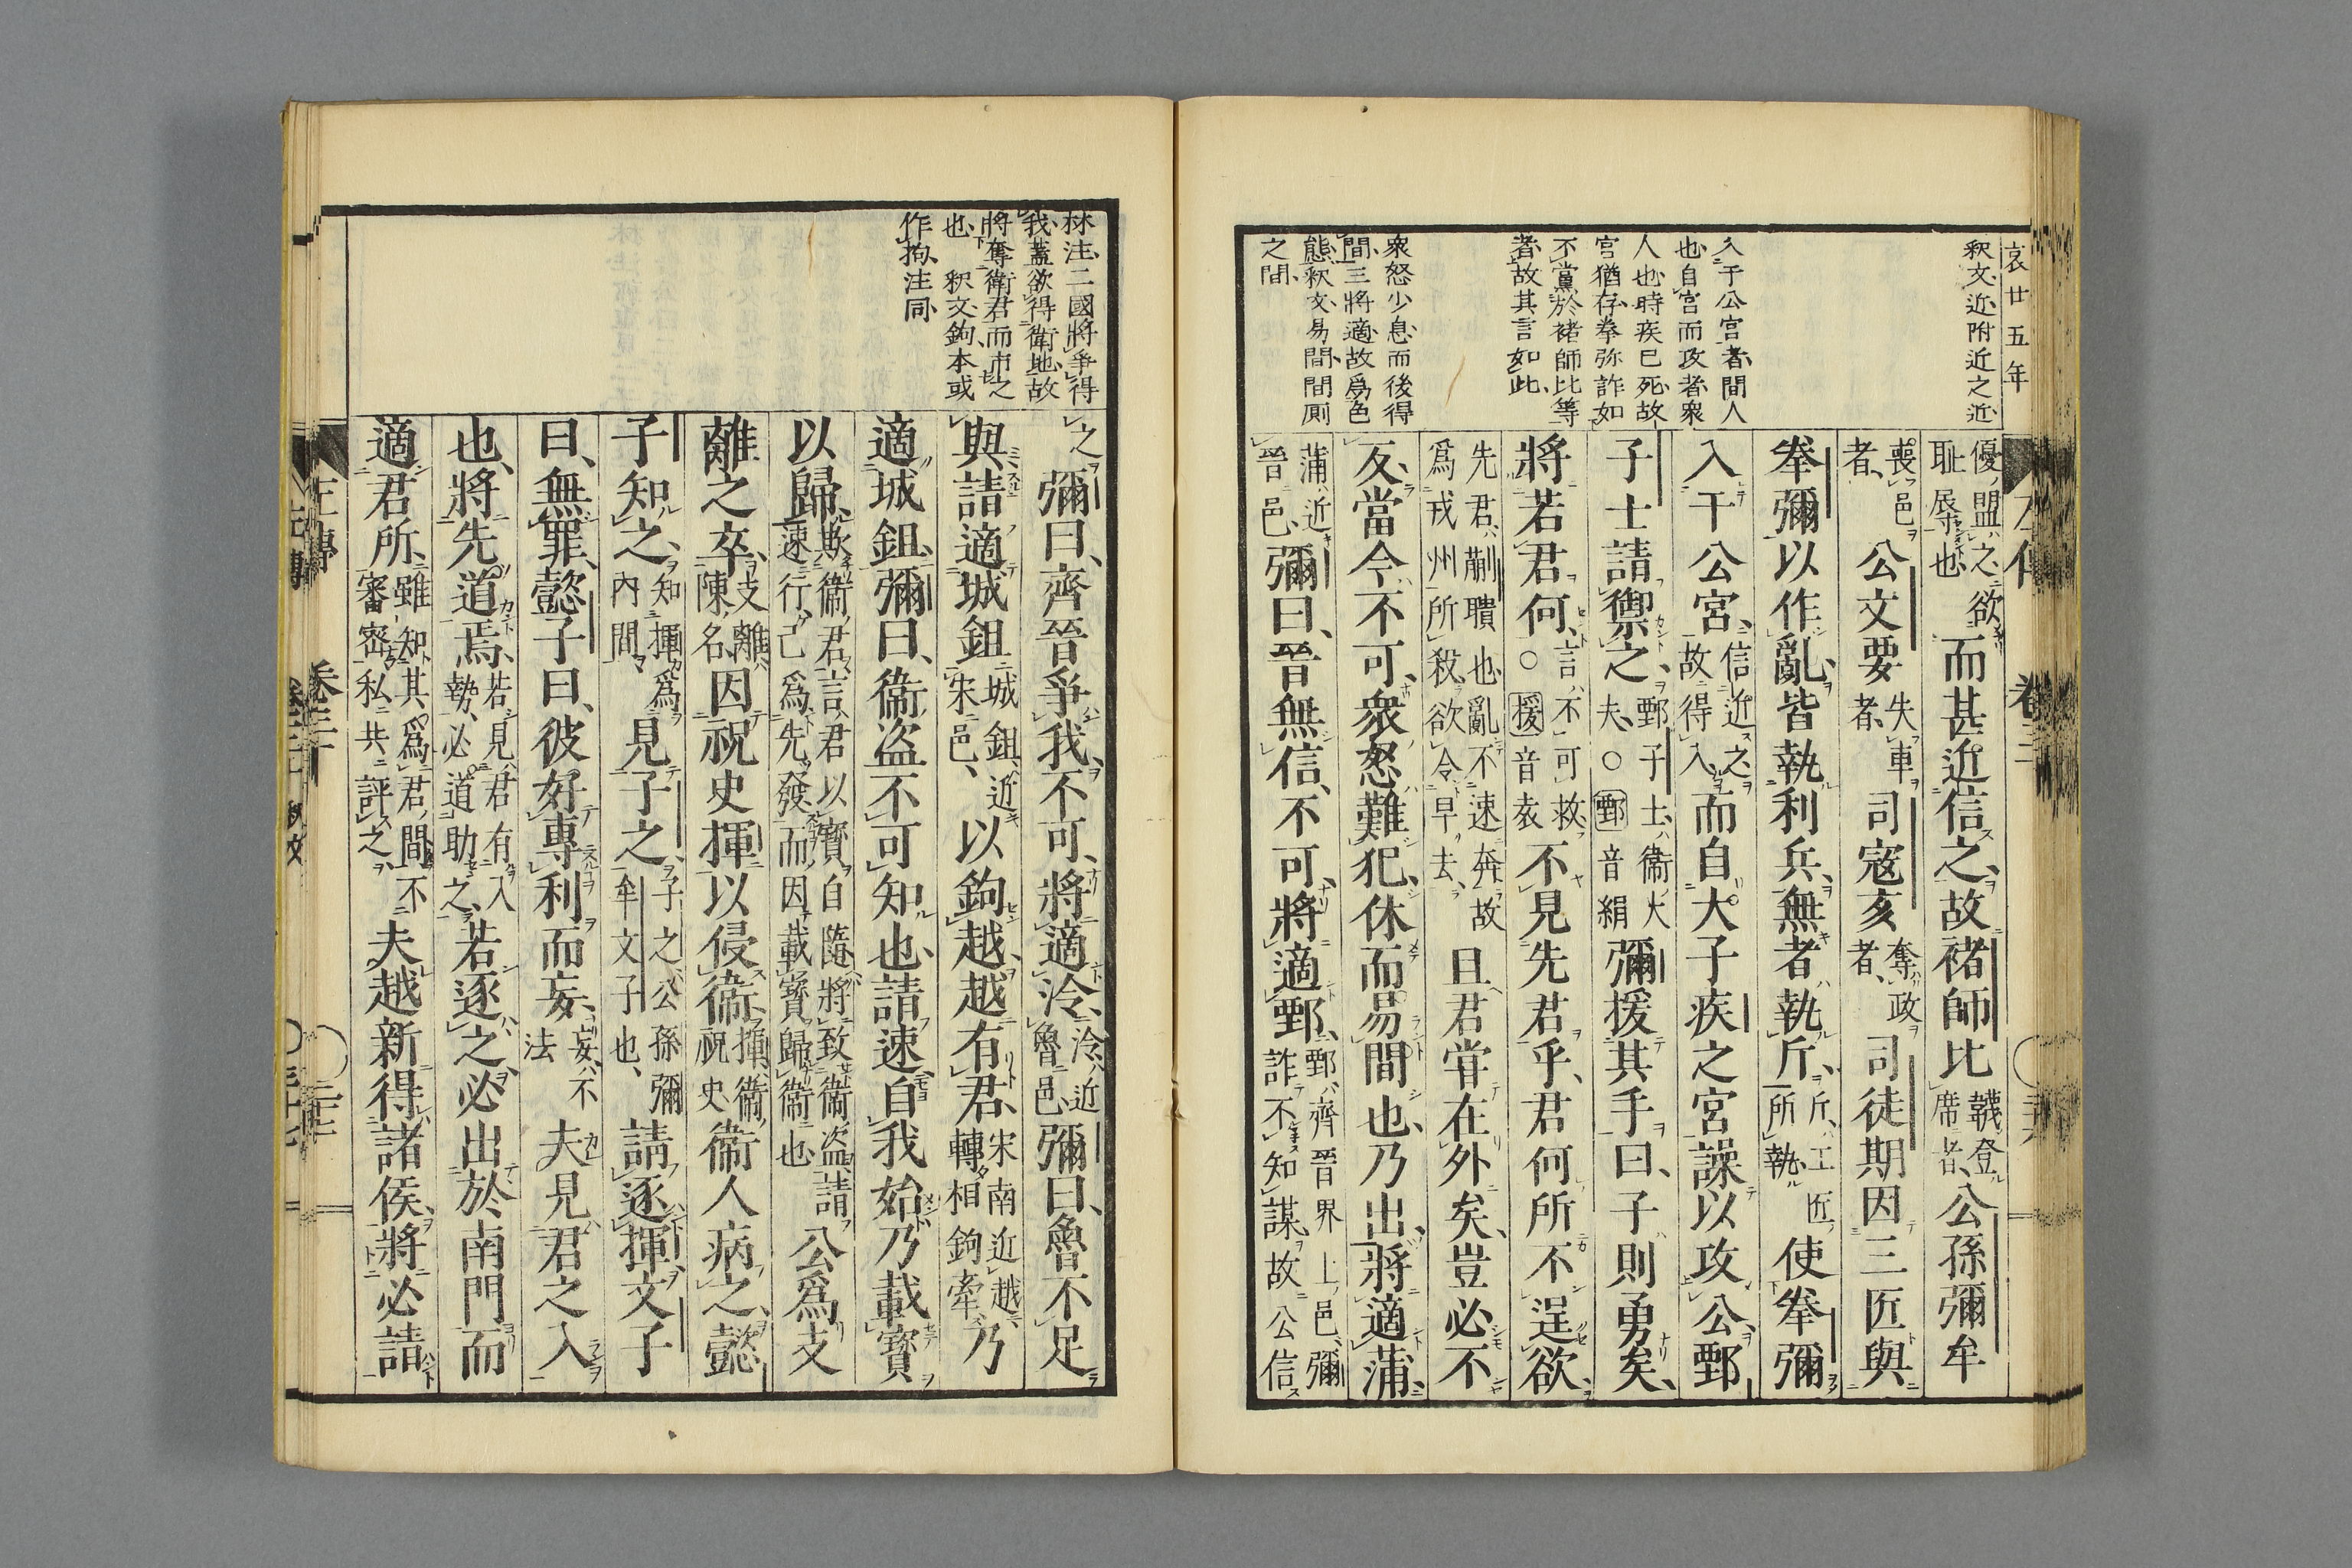 哀廿五年
釈文近附近之近
入于公宮者間人
也自宮而攻者衆
人也時疾已死故
宮猶存拳弥詐如
不黨於褚師比等
者故其言如此
衆怒少息而後得
間三將適故爲色
態釈文易間間厠
之間
優盟之欲
耻辱也
而甚近信之故褚師比
韈登
席者
公孫彌牟
喪邑
者
公文要
失車
者
司寇亥
奪政
者
司徒期因三匠與
拳彌以作亂皆執利兵無者執斤
斤工匠
所執
使拳彌
入于公宮
信近之
故得入
而自大子疾之宮譟以攻公鄄
子士請禦之
鄄子士衞大
夫○鄄音絹
彌援其手曰子則勇矣
將若君何
言不可救
○援音袁
不見先君乎君何所不逞欲
先君蒯聵也亂不速奔故
爲戎州所殺欲令早去
且君嘗在外矣豈必不
反當今不可衆怒難犯休而易間也乃出將適蒲
蒲近
晉邑
彌曰晉無信不可將適鄄
鄄齊晉界上邑彌
詐不知謀故公信
林注二國將爭得
我蓋欲得衛地故
將奪衛君而市之
也 釈文鉤本或
作拘注同
之
彌曰齊晉爭我不可將適泠
泠近
魯邑
彌曰魯不足
與請適城鉏
城鉏近
宋邑
以鉤越越有君
宋南近越
轉相鉤牽
乃
適城鉏彌曰衞盗不可知也請速自我始乃載寶
以歸
欺衞君言君以寶自隨將致衞盗請
速行己爲先發而因載寶歸衞也
公爲支
離之卒
支離
陳名
因祝史揮以侵衞
揮衞
祝史
衞人病之懿
子知之
知揮爲
內間
見子之
子之公孫彌
牟文子也
請逐揮文子
曰無罪懿子曰彼好專利而妄
妄不
法
夫見君之入
也將先道焉
若見君有入
勢必道助之
若逐之必出於南門而
適君所
雖知其爲君間不
審察私共評之
夫越新得諸侯將必請
左傳
卷三十